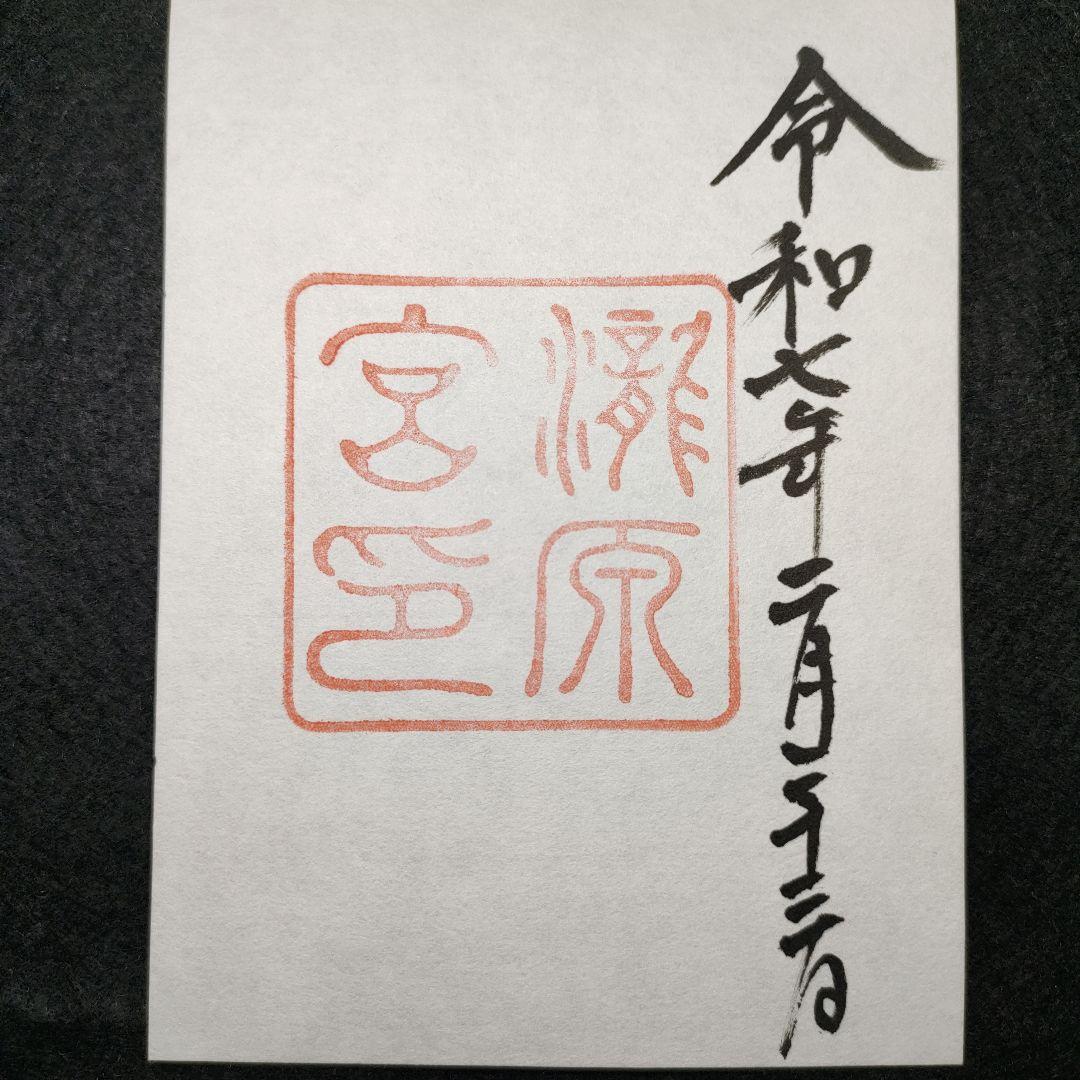 令和七年二月二十二日
瀧原
宮印